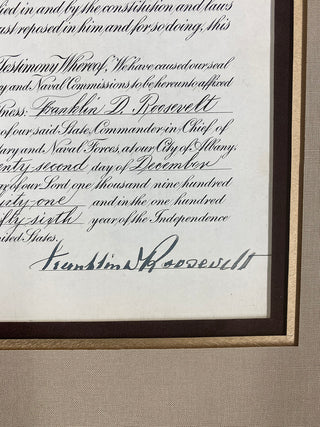 by the constitution and laws
reposed in him, and for so doing, this
Testimony Whereof, We have caused our seal
and Naval Commissions to be hereunto affixed
Franklin D. Roosevelt
of our said State, Commander in Chief of
and Naval Forces, at our City of Albany,
second day of December
of our Lord one thousand nine hundred
one and in the one hundred
sixth year of the Independence
States.
Franklin D Roosevelt